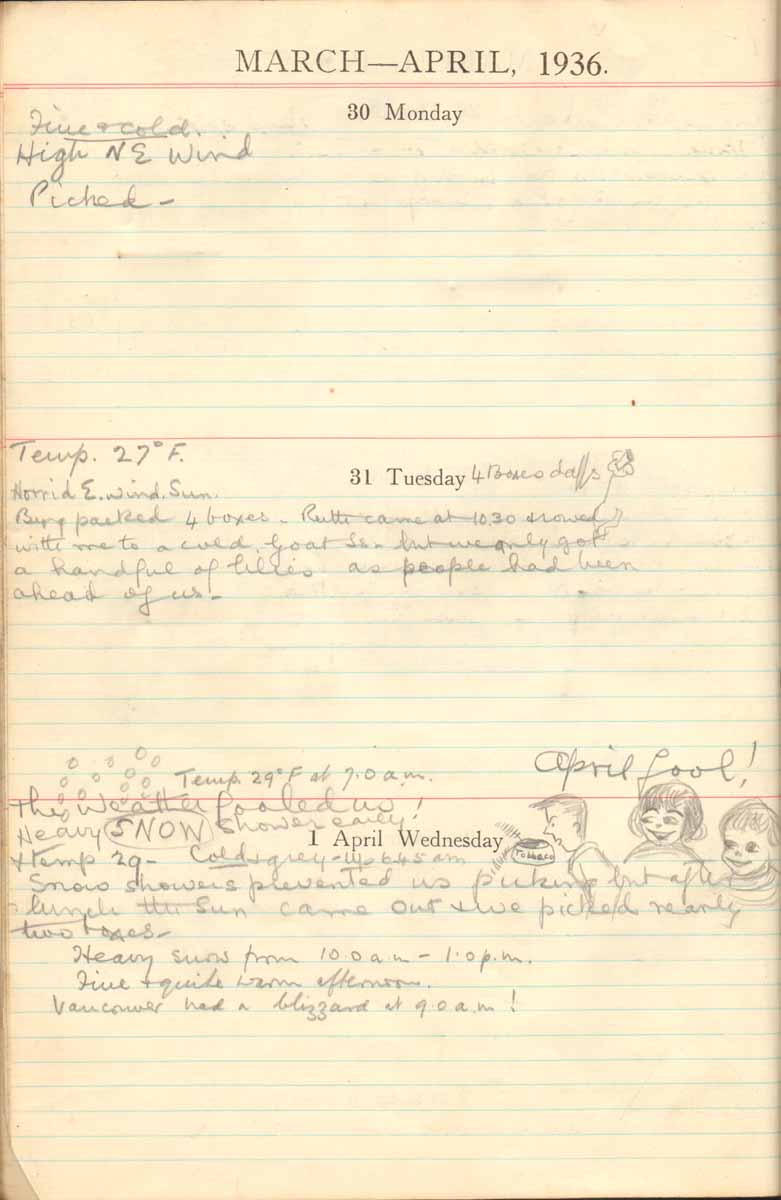 MARCH—APRIL, 1936.
30 Monday
Fine & cold.
High NE Wind
Picked –
Temp. 27° F.
31 Tuesday 4 Boxes daffs
Horrid E. wind. Sun.
packed 4 boxes – Ruth came at 10.30 & rowed
with me to a cold Goat Is – but we only got
a handful of lilies as people had been
ahead of us –
Temp. 29° F at 7.0 a.m.
April fool!
The Weather fooled us!
Heavy SNOW shower early!
1 April Wednesday
Tobacco
& temp 29 – Cold & grey – up 6.45 am
Snow showers prevented us picking but after
lunch the Sun came out & we picked nearly
two boxes –
Heavy snow from 10.0 a.m – 1.0 p.m.
Fine & quite warm afternoon.
Vancouver had a blizzard at 9.0 a.m!